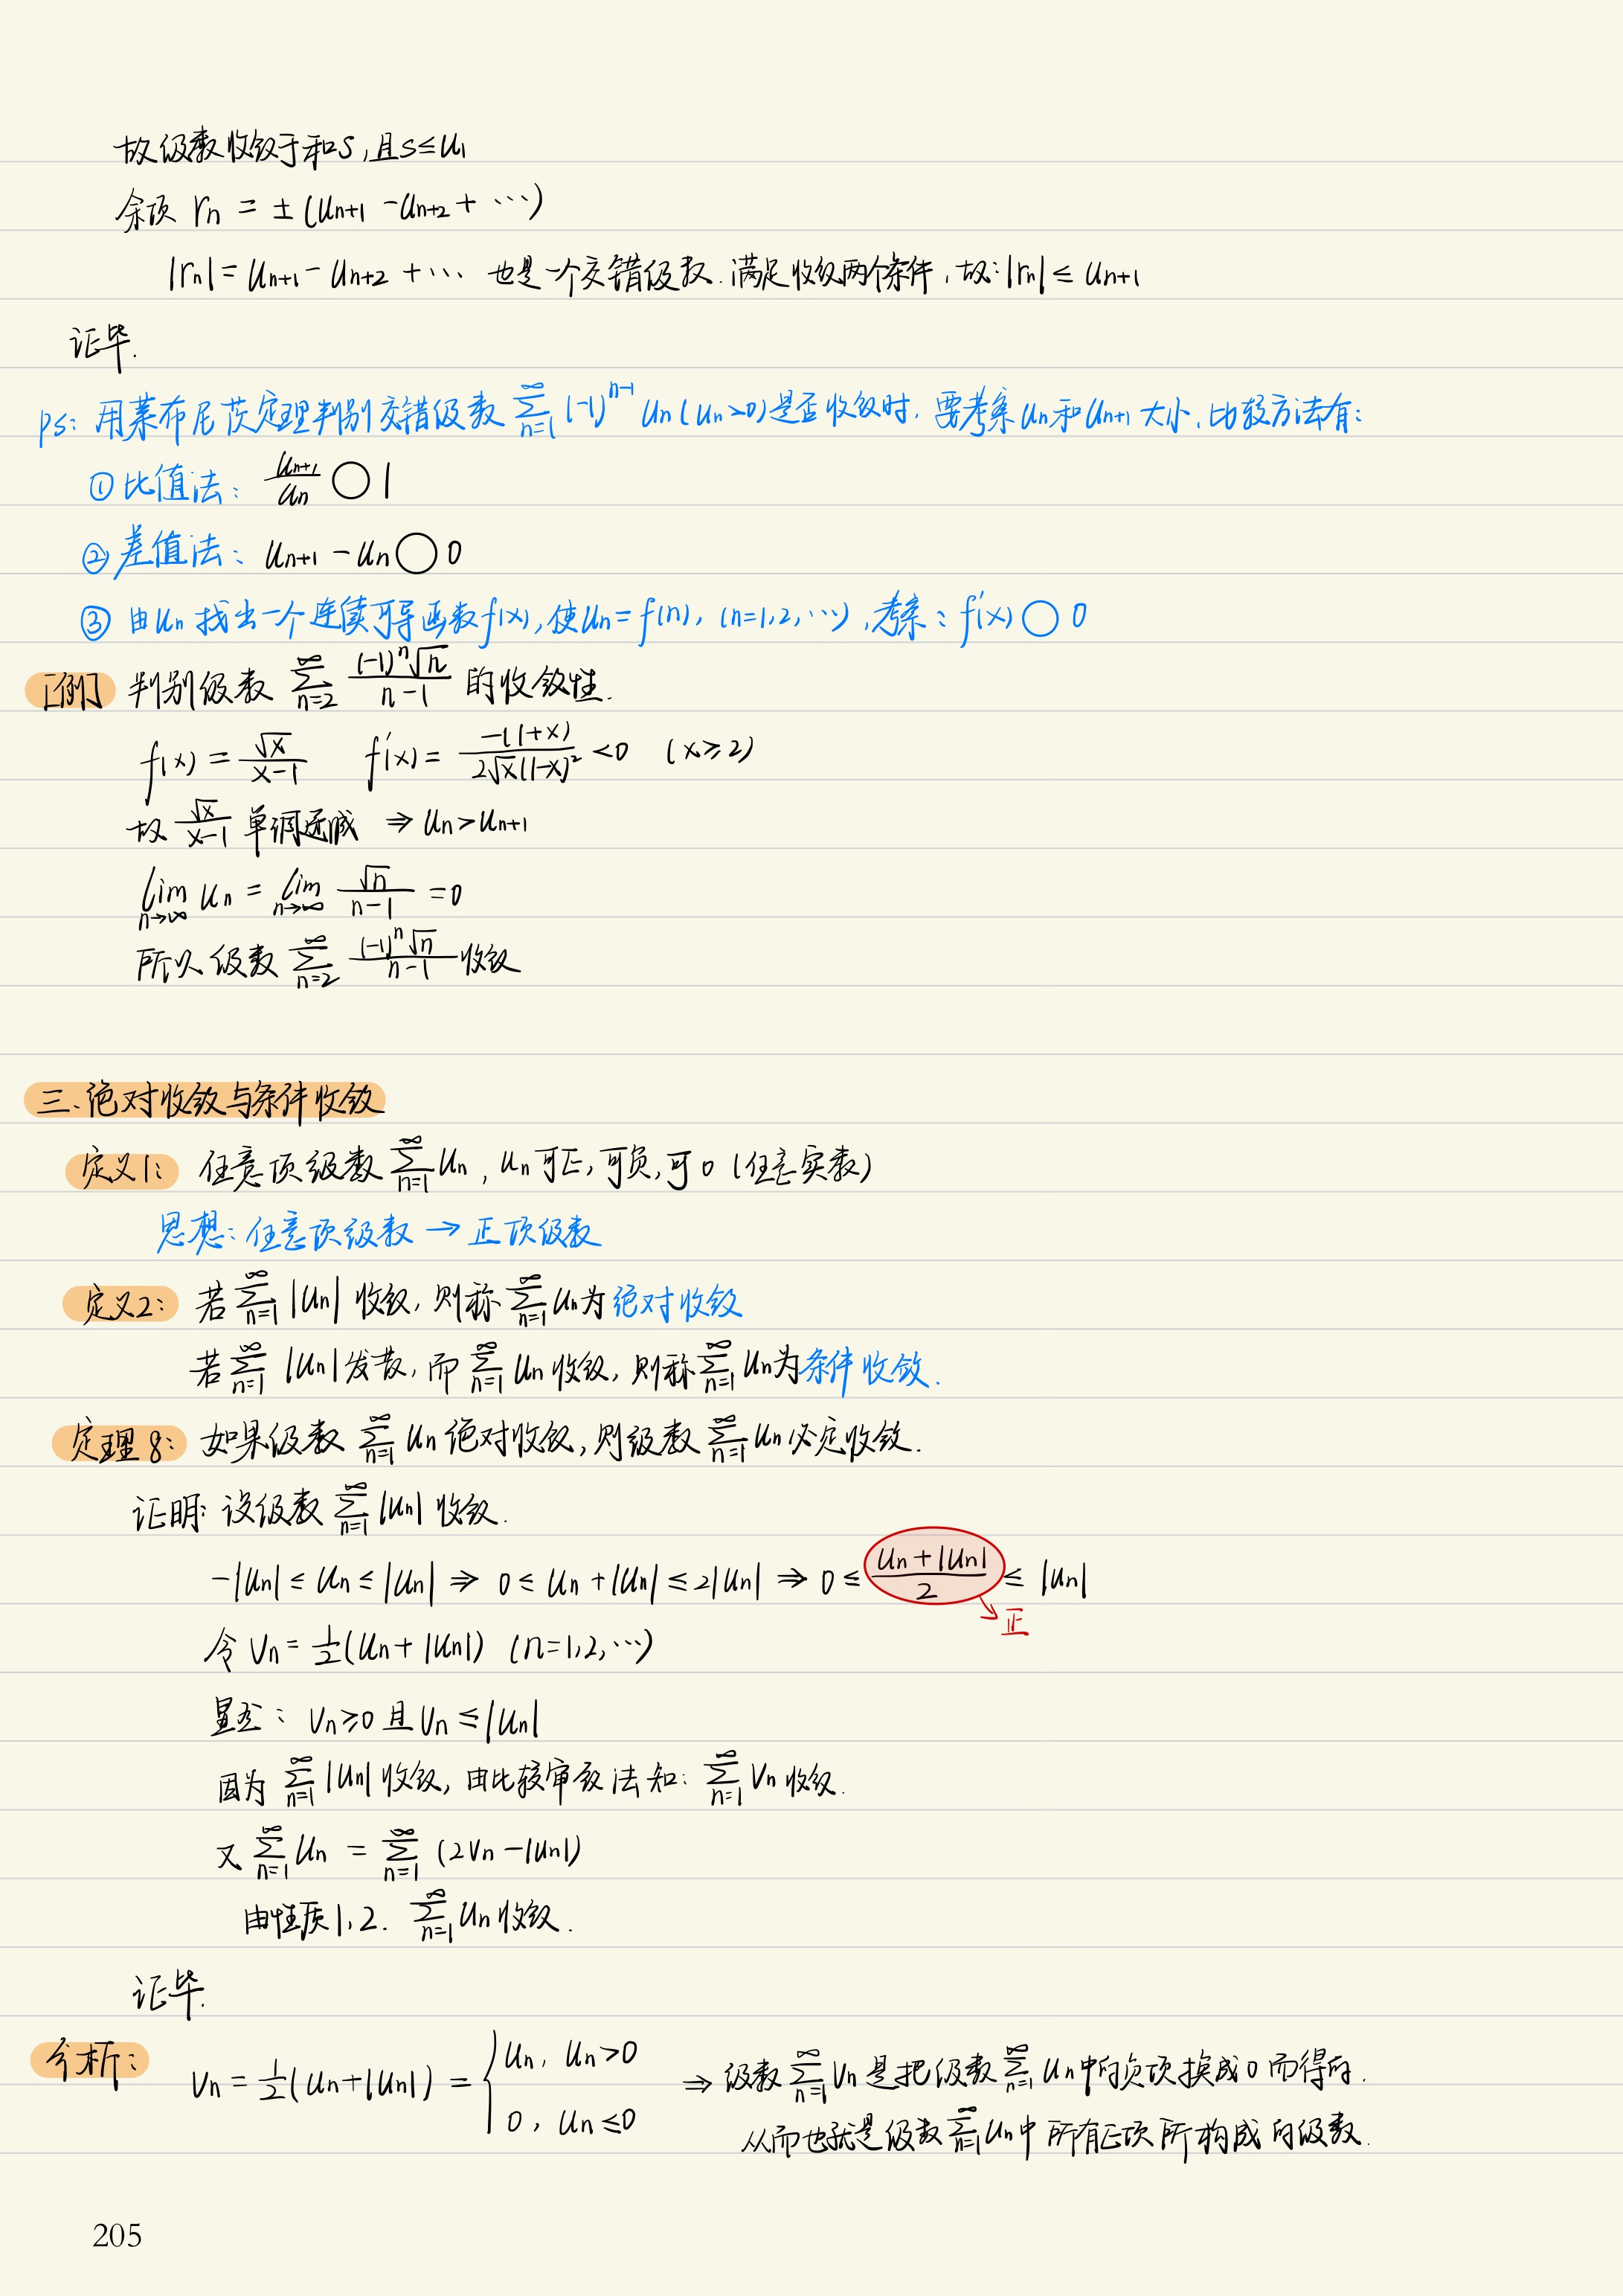 故级数收敛于和S,且S≤u₁
余项 rₙ = ±(uₙ₊₁ - uₙ₊₂ + ⋯)
|rₙ| = uₙ₊₁ - uₙ₊₂ + ⋯ 也是一个交错级数.满足收敛两个条件,故:|rₙ| ≤ uₙ₊₁
证毕.
ps: 用莱布尼茨定理判别交错级数 ∑_{n=1}^{∞} (-1)^{n-1} uₙ (uₙ>0)是否收敛时, 要考察uₙ和uₙ₊₁大小,比较方法有:
①比值法: uₙ₊₁/uₙ ◯ 1
②差值法: uₙ₊₁ - uₙ ◯ 0
③ 由uₙ找出一个连续可导函数f(x),使uₙ=f(n), (n=1,2,⋯),考察: f′(x) ◯ 0
[例] 判别级数 ∑_{n=2}^{∞} (-1)ⁿ√n/(n-1) 的收敛性.
f(x) = √x/(x-1) f′(x) = -(1+x)/(2√x(1-x)²) <0 (x≥2)
故 √x/(x-1) 单调递减 ⇒ uₙ>uₙ₊₁
lim_{n→∞} uₙ = lim_{n→∞} √n/(n-1) = 0
所以级数 ∑_{n=2}^{∞} (-1)ⁿ√n/(n-1) 收敛
三.绝对收敛与条件收敛
定义1: 任意项级数 ∑_{n=1}^{∞} uₙ, uₙ可正,可负,可0 (任意实数)
思想:任意项级数 → 正项级数
定义2: 若 ∑_{n=1}^{∞} |uₙ| 收敛, 则称 ∑_{n=1}^{∞} uₙ为绝对收敛
若 ∑_{n=1}^{∞} |uₙ|发散,而 ∑_{n=1}^{∞} uₙ收敛, 则称 ∑_{n=1}^{∞} uₙ为条件收敛.
定理8: 如果级数 ∑_{n=1}^{∞} uₙ绝对收敛,则级数 ∑_{n=1}^{∞} uₙ必定收敛.
证明: 设级数 ∑_{n=1}^{∞} |uₙ| 收敛.
-|uₙ| ≤ uₙ ≤ |uₙ| ⇒ 0 ≤ uₙ+|uₙ| ≤ 2|uₙ| ⇒ 0 ≤ (uₙ+|uₙ|)/2 ≤ |uₙ|
正
令 vₙ = ½(uₙ+|uₙ|) (n=1,2,⋯)
显然: vₙ≥0 且vₙ ≤|uₙ|
因为 ∑_{n=1}^{∞} |uₙ|收敛, 由比较审敛法知: ∑_{n=1}^{∞} vₙ收敛.
又 ∑_{n=1}^{∞} uₙ = ∑_{n=1}^{∞} (2vₙ-|uₙ|)
由性质1,2. ∑_{n=1}^{∞} uₙ收敛.
证毕.
分析: vₙ = ½(uₙ+|uₙ|) = { uₙ, uₙ>0 ⇒ 级数 ∑_{n=1}^{∞} vₙ是把级数 ∑_{n=1}^{∞} uₙ中的负项换成0而得的.
0, uₙ≤0 从而也就是级数 ∑_{n=1}^{∞} uₙ中所有正项所构成的级数.
205